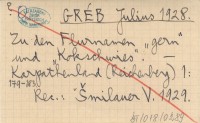 ?
GRÉB Julius 1928.
Zu den Flurnamen „gorn"
und „Kokschwies".
Karpathenland (Reichenberg) 1:
179-183
Rec.: Šmilauer V. 1929.